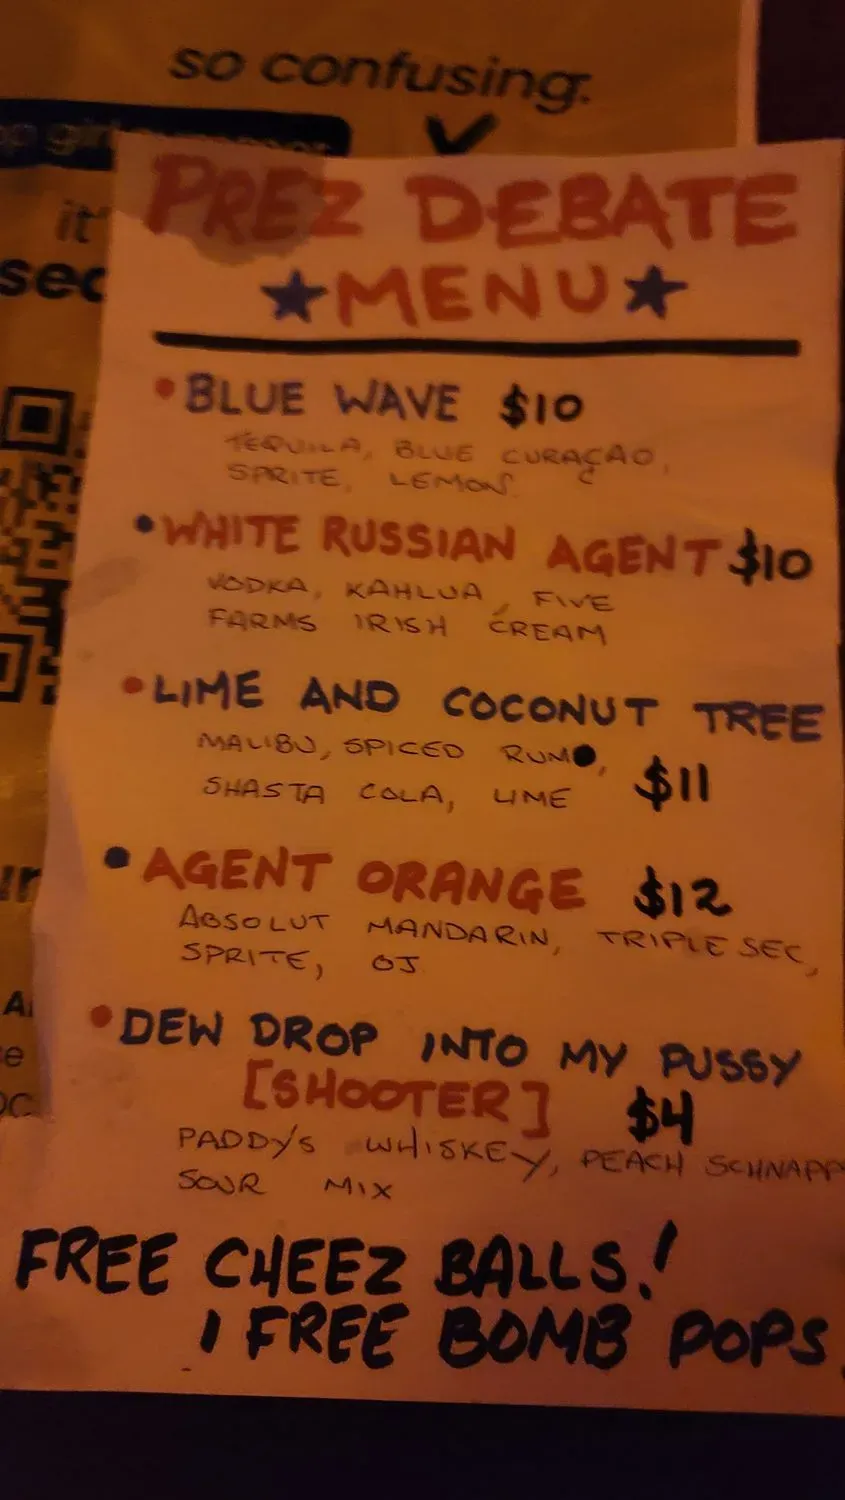 so confusing.
it'
sec
PREZ DEBATE
★MENU★
• BLUE WAVE $10
TEQUILA, BLUE CURAÇAO,
SPRITE, LEMON
• WHITE RUSSIAN AGENT $10
VODKA, KAHLUA, FIVE
FARMS IRISH CREAM
• LIME AND COCONUT TREE
MALIBU, SPICED RUM,
SHASTA COLA, LIME $11
• AGENT ORANGE $12
ABSOLUT MANDARIN, TRIPLE SEC,
SPRITE, OJ
• DEW DROP INTO MY PUSSY
[SHOOTER] $4
PADDY'S WHISKEY, PEACH SCHNAPP
SOUR MIX
FREE CHEEZ BALLS!
! FREE BOMB POPS